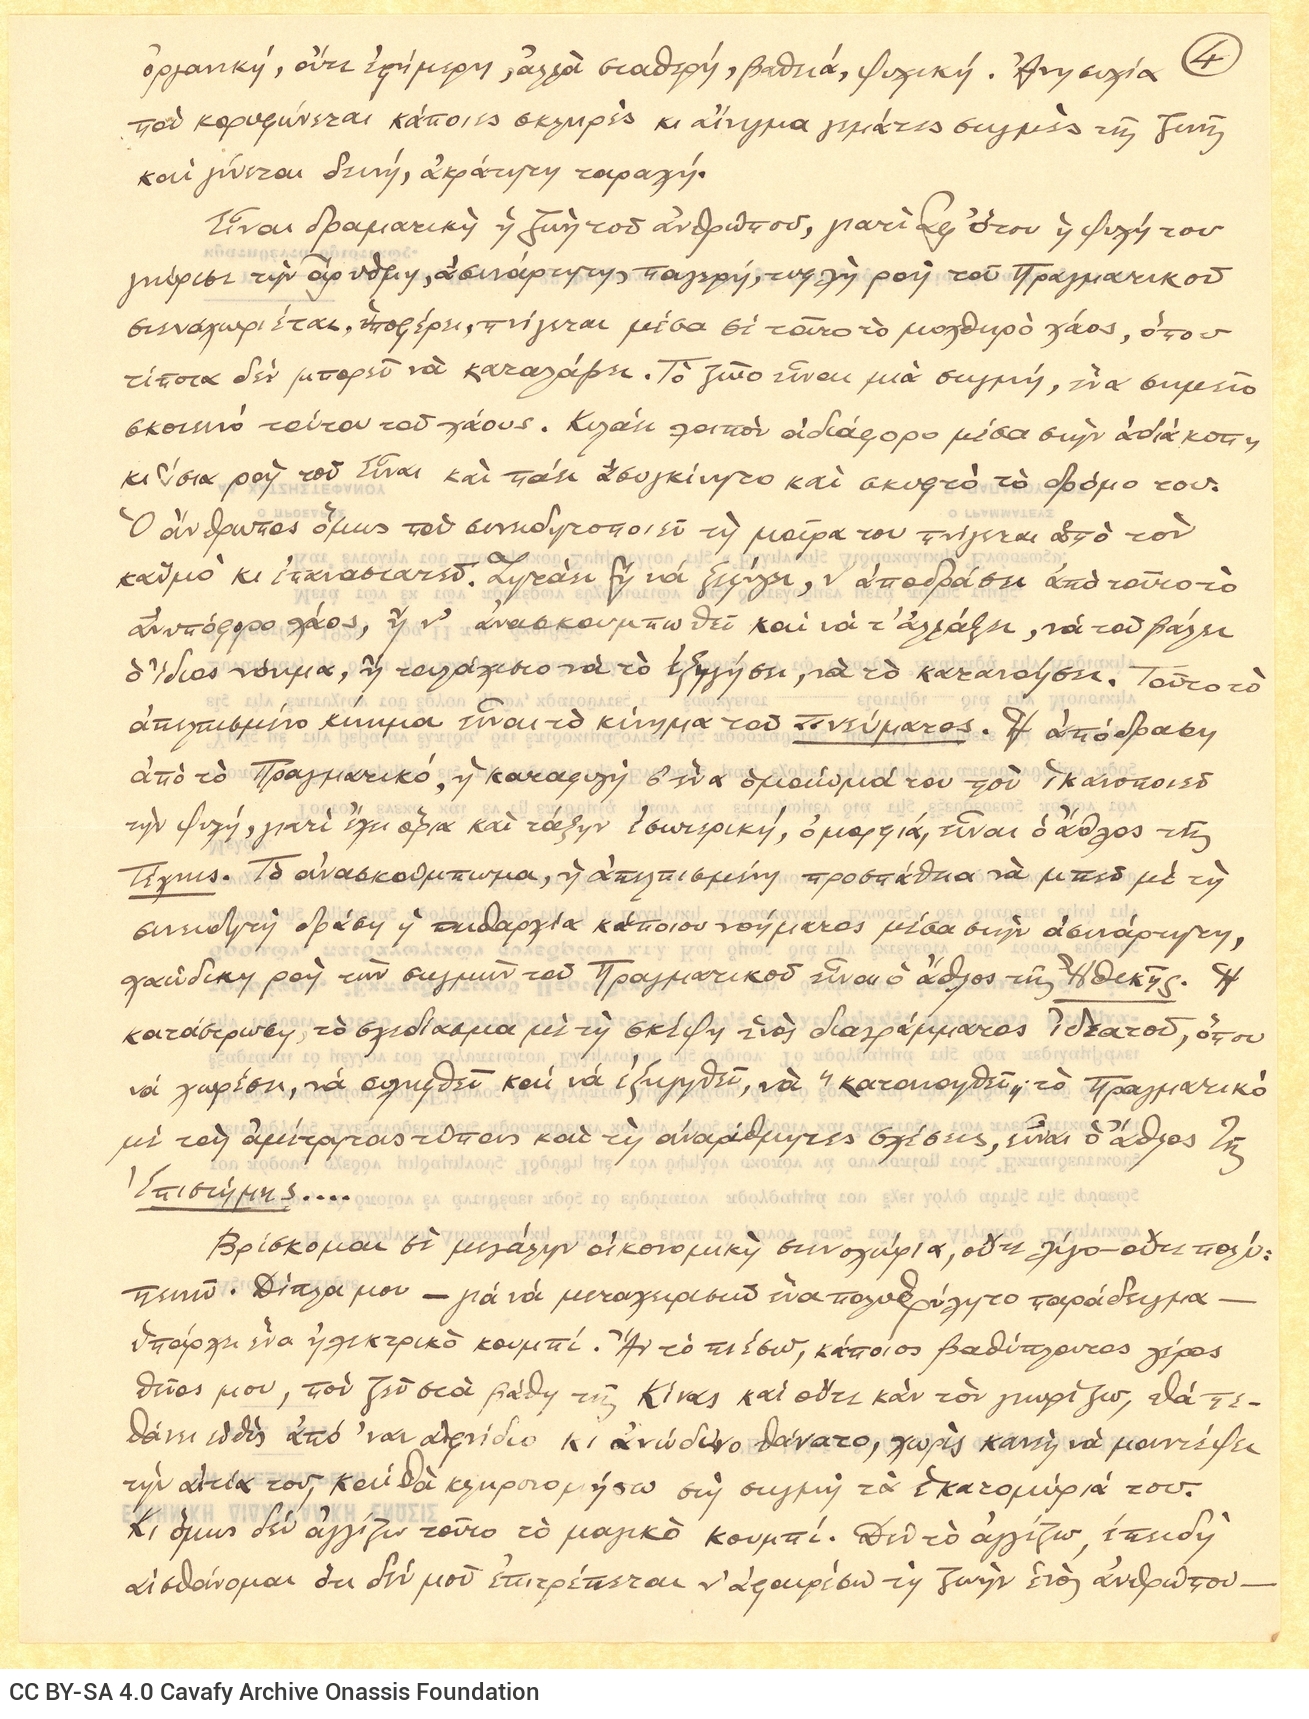 4
ὀργανική, οὔτε ἐφήμερη, ἀλλὰ σταθερή, βαθειά, ψυχική. Ἀνησυχία
ποὺ κορυφώνεται κάποιες σκληρὲς κι αἴνιγμα γεμάτες στιγμὲς τῆς ζωῆς
καὶ γίνεται δεινή, ἀκράτητη ταραχή.
Εἶναι δραματικὴ ἡ ζωὴ τοῦ ἀνθρώπου, γιατὶ ἀφ' ὅτου ἡ ψυχή του
γνώρισε τὴν ἄρυθμη, ἀσυνάρτητη, παγερή, τυφλὴ ροὴ τοῦ Πραγματικοῦ
στενοχωριέται, ὑποφέρει, πνίγεται μέσα σὲ τοῦτο τὸ μοχθηρὸ χάος, ὅπου
τίποτα δὲν μπορεῖ νὰ καταλάβει. Τὸ ζῶο εἶναι μιὰ στιγμή, ἕνα σημεῖο
σκοτεινό τούτου τοῦ χάους. Κυλάει λοιπὸν ἀδιάφορο μέσα στὴν ἀδιάκοπη
κι ἴσια ροὴ τοῦ Εἶναι καὶ πάει ἀσυγκίνητο καὶ σκυφτὸ τὸ δρόμο του.
Ὁ ἄνθρωπος ὅμως ποὺ συνειδητοποιεῖ τὴ μοῖρα του πνίγεται ἀπὸ τὸν
καϋμὸ κι ἐπαναστατεῖ. Ζητάει ἢ νά ξεφύγει, ν' ἀποδράσει ἀπὸ τοῦτο τὸ
ἀνυπόφορο χάος, ἢ ν' ἀνασκουμπωθεῖ καὶ νὰ τ' ἀλλάξει, νὰ τοῦ βάλει
ὁ ἴδιος νόημα, ἢ τουλάχιστο νὰ τὸ ἐξηγήσει, νὰ τὸ κατανοήσει. Τοῦτο τὸ
ἀπελπισμένο κίνημα εἶναι τὸ κίνημα τοῦ Πνεύματος. Ἡ ἀπόδραση
ἀπὸ τὸ Πραγματικό, ἡ καταφυγὴ σ' ἕνα ὁμοίωμά του ποὺ ἱκανοποιεῖ
τὴν ψυχή, γιατὶ ἔχει ὅρια καὶ τάξην ἐσωτερική, ὀμορφιά, εἶναι ὁ ἆθλος τῆς
Τέχνης. Τὸ ἀνασκούμπωμα, ἡ ἀπελπισμένη προσπάθεια νὰ μπεῖ μὲ τὴ
συνειδητὴ δράση ἡ πειθαρχία κάποιου νοήματος μέσα στὴν ἀσυνάρτητη,
χαώδικη ροὴ τῶν στιγμῶν τοῦ Πραγματικοῦ εἶναι ὁ ἆθλος τῆς Ἠθικῆς. Ἡ
κατάστρωση, τὸ σχεδίασμα μὲ τὴ σκέψη ἑνὸς διαγράμματος Ἰδεατοῦ, ὅπου
νά χωρέσει, νά στηριχθεῖ καὶ νά ἐξηγηθεῖ, νὰ "κατανοηθεῖ" τὸ Πραγματικὸ
μὲ τοὺς ἀμέτρητους τύπους καὶ τὶς ἀναρίθμητες σχέσεις, εἶναι ὁ ἆθλος τῆς
Ἐπιστήμης....
Βρίσκομαι σὲ μεγάλην οἰκονομικὴ στενοχώρια, οὔτε λίγο—οὔτε πολύ:
πεινῶ. Δίπλα μου — γιὰ νὰ μεταχειρισθῶ ἕνα πολυθρύλητο παράδειγμα —
ὑπάρχει ἕνα ἠλεκτρικὸ κουμπί. Ἂν τὸ πιέσω, κάποιος βαθύπλουτος γέρος
θεῖος μου, ποὺ ζεῖ στὰ βάθη τῆς Κίνας καὶ οὔτε κἂν τὸν γνωρίζω, θὰ πε-
θάνει εὐθὺς ἀπό 'ναν αἰφνίδιο κι ἀνώδυνο θάνατο, χωρὶς κανεὶς νὰ μαντέψει
τὴν αἰτία του, καὶ θὰ κληρονομήσω στὴ στιγμὴ τὰ ἑκατομύριά του.
Κι ὅμως δὲν ἀγγίζω τοῦτο τὸ μαγικὸ κουμπί. Δὲν τὸ ἀγγίζω, ἐπειδὴ
αἰσθάνομαι ὅτι δέν μοῦ ἐπιτρέπεται ν' ἀφαιρέσω τὴ ζωὴν ἑνὸς ἀνθρώπου—
CC BY-SA 4.0 Cavafy Archive Onassis Foundation